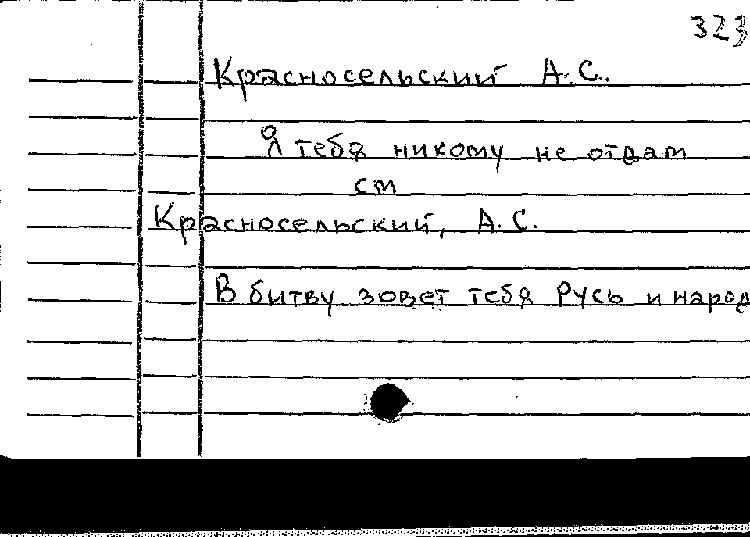 323
Красносельский А.С.
Я тебя никому не отдам
см
Красносельский, А.С.
В битву зовет тебя Русь и народ